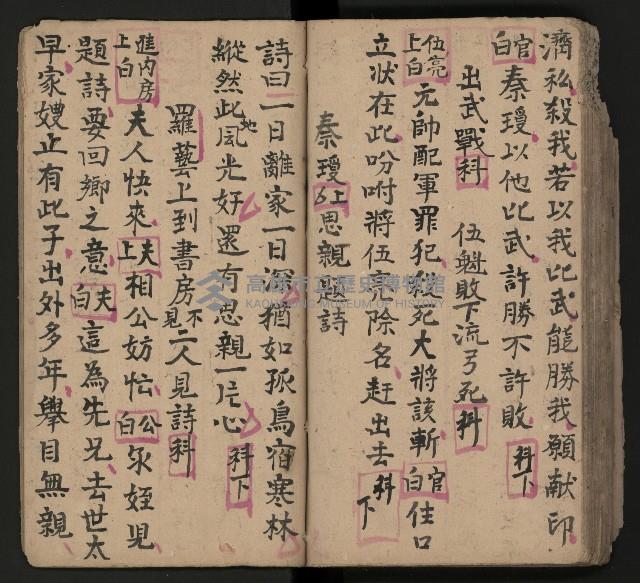 濟私殺我若以我比武能勝我願献印
官白秦瓊以他比武許勝不許敗科下
出武戰科 伍魁敗下流弓死科
伍亮上白元帥配軍罪犯 死大將該斬官白住口
立状在此吩咐將伍 除名赶出去科下
秦瓊上思親 詩
詩曰一日離家一日深猶如孤鳥宿寒林
縱然此地風光好還有思親一片心科下
羅藝上到書房不見二人見詩科
進內房上白夫人快來夫上相公妨忙公白 姪児
題詩要回鄉之意夫白這為先兄去世太
早家嫂止有此子出外多年舉目無親
高雄市立歷史博物館
KAOHSIUNG MUSEUM OF HISTORY